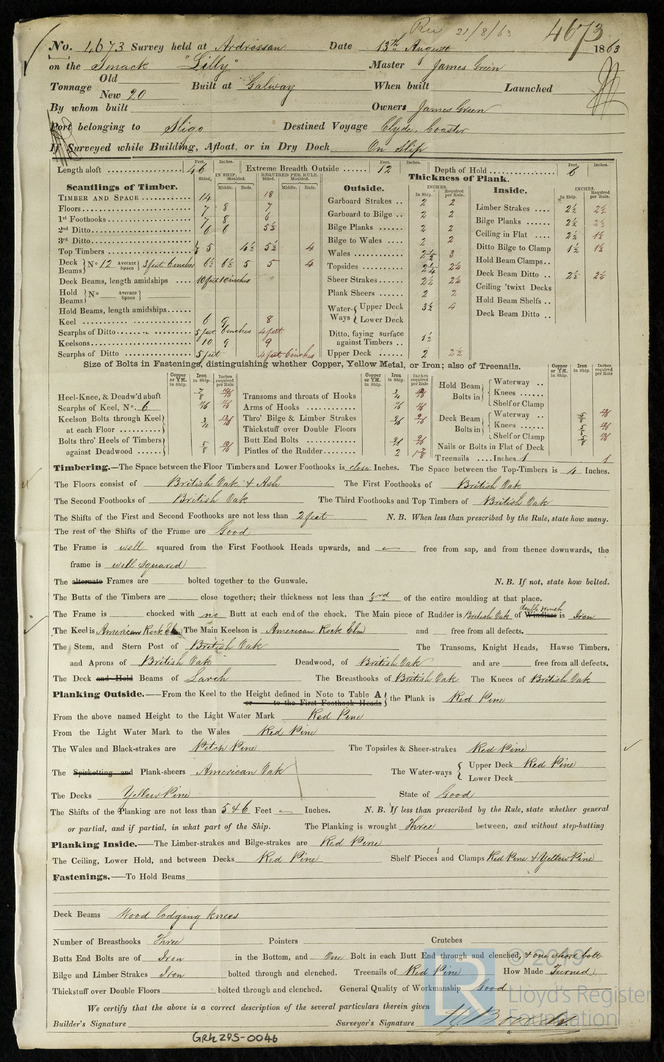 Rec 21/8/63 4673
No. 4673 Survey held at Ardrossan Date 13th August 1863
on the Smack "Lilly" Master James Green
Tonnage Old
New 20 Built at Galway When built Launched
By whom built Owners James Green
Port belonging to Sligo Destined Voyage Clyde, Coaster
If Surveyed while Building, Afloat, or in Dry Dock On Slip
Length aloft 46 Extreme Breadth Outside 12 Depth of Hold 6
Scantlings of Timber. Thickness of Plank.
Outside. Inside.
TIMBER AND SPACE 14 18
Floors 7 8 7
1st Foothooks 7 8 6
2nd Ditto 6 6 5½
3rd Ditto
Top Timbers 5 4½ 5½ 4
Deck Beams No. 12 Average Space 3 feet 6 inches 6½ 6½ 5 5 4
Deck Beams, length amidships 10 feet 10 inches
Hold Beams No. Average Space
Hold Beams, length amidships
Keel 6 9 8
Scarphs of Ditto 5 feet 6 inches 4 feet
Keelsons 10 9 9
Scarphs of Ditto 5 feet 4 feet 6 inches
Garboard Strakes 2 2
Garboard to Bilge 2 2
Bilge Planks 2 2
Bilge to Wales 2 2
Wales 2½ 3
Topsides 2¼ 2¼
Sheer Strakes 2½ 2½
Plank Sheers 2 2
Water-Ways Upper Deck 3½ 4
Lower Deck
Ditto, faying surface against Timbers 1½
Upper Deck 2 2½
Limber Strakes 2½ 2½
Bilge Planks 2½ 2½
Ceiling in Flat 2½ 1½
Ditto Bilge to Clamp 1½ 1½
Hold Beam Clamps
Deck Beam Ditto 2½ 2½
Ceiling 'twixt Decks
Hold Beam Shelfs
Deck Beam Ditto
Size of Bolts in Fastenings, distinguishing whether Copper, Yellow Metal, or Iron; also of Treenails.
Heel-Knee, & Deadw'd abaft 7/8
Scarphs of Keel, No. 6
Keelson Bolts through Keel at each Floor 3/4
Bolts thro' Heels of Timbers against Deadwood 5/8
Transoms and throats of Hooks 3/4
Arms of Hooks
Thro' Bilge & Limber Strakes
Thickstuff over Double Floors
Butt End Bolts
Pintles of the Rudder 2
Hold Beam Bolts in Waterway
Knees
Shelf or Clamp
Deck Beam Bolts in Waterway
Knees
Shelf or Clamp
Nails or Bolts in Flat of Deck
Treenails Inches 1 1
Timbering.—The Space between the Floor Timbers and Lower Foothooks is close Inches. The Space between the Top-Timbers is 4 Inches.
The Floors consist of British Oak & Ash The First Foothooks of British Oak
The Second Foothooks of British Oak The Third Foothooks and Top Timbers of British Oak
The Shifts of the First and Second Foothooks are not less than 2 feet N. B. When less than prescribed by the Rule, state how many.
The rest of the Shifts of the Frame are Good
The Frame is well squared from the First Foothook Heads upwards, and free from sap, and from thence downwards, the
frame is well squared
The alternate Frames are bolted together to the Gunwale. N. B. If not, state how bolted.
The Butts of the Timbers are close together; their thickness not less than 3rd of the entire moulding at that place.
The Frame is chocked with no Butt at each end of the chock. The Main piece of Rudder is British Oak of Windlass double winch is Iron
The Keel is American Rock Elm The Main Keelson is American Rock Elm and free from all defects.
The Stem, and Stern Post of British Oak The Transoms, Knight Heads, Hawse Timbers,
and Aprons of British Oak Deadwood, of British Oak and are free from all defects.
The Deck and Hold Beams of Larch The Breasthooks of British Oak The Knees of British Oak
Planking Outside.—From the Keel to the Height defined in Note to Table A or to the First Foothook Heads the Plank is Red Pine
From the above named Height to the Light Water Mark Red Pine
From the Light Water Mark to the Wales Red Pine
The Wales and Black-strakes are Pitch Pine The Topsides & Sheer-strakes Red Pine
The Spirketting and Plank-sheers American Oak The Water-ways Upper Deck Red Pine
Lower Deck
The Decks Yellow Pine State of Good
The Shifts of the Planking are not less than 5 & 6 Feet Inches. N. B. If less than prescribed by the Rule, state whether general
or partial, and if partial, in what part of the Ship. The Planking is wrought Three between, and without step-butting
Planking Inside.—The Limber-strakes and Bilge-strakes are Red Pine
The Ceiling, Lower Hold, and between Decks Red Pine Shelf Pieces and Clamps Red Pine & Yellow Pine
Fastenings.—To Hold Beams
Deck Beams Wood lodging knees
Number of Breasthooks Three Pointers Crutches
Butts End Bolts are of Iron in the Bottom, and One Bolt in each Butt End through and clenched, & one short bolt
Bilge and Limber Strakes Iron bolted through and clenched. Treenails of Red Pine How Made Turned
Thickstuff over Double Floors bolted through and clenched. General Quality of Workmanship Good
We certify that the above is a correct description of the several particulars therein given
Builder's Signature Surveyor's Signature
GRK ZPS-0046
© 2019
Lloyd's Register
Foundation